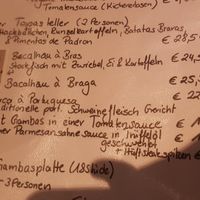 Tomatensauce (Kichererbsen)
er Tapasteller (2 Personen)
Hackbällchen, Runzelkartoffeln, Batatas Bravas
& Pimentos de Padron € 28,5
Bacalhau à Bras
Stockfisch mit Zwiebel, Ei & Kartoffeln € 24,5
Bacalhau à Braga € 25,
rco à Portuguesa € 22
ditionelle port. Schweinefleisch Gericht
it Gambas in einer Tomatensauce €
ner Parmesansahnesauce in Trüffelöl
geschwenkt €
+ Hüftsteakspitzen €
Gambasplatte (18 Stück)
-3 Personen €